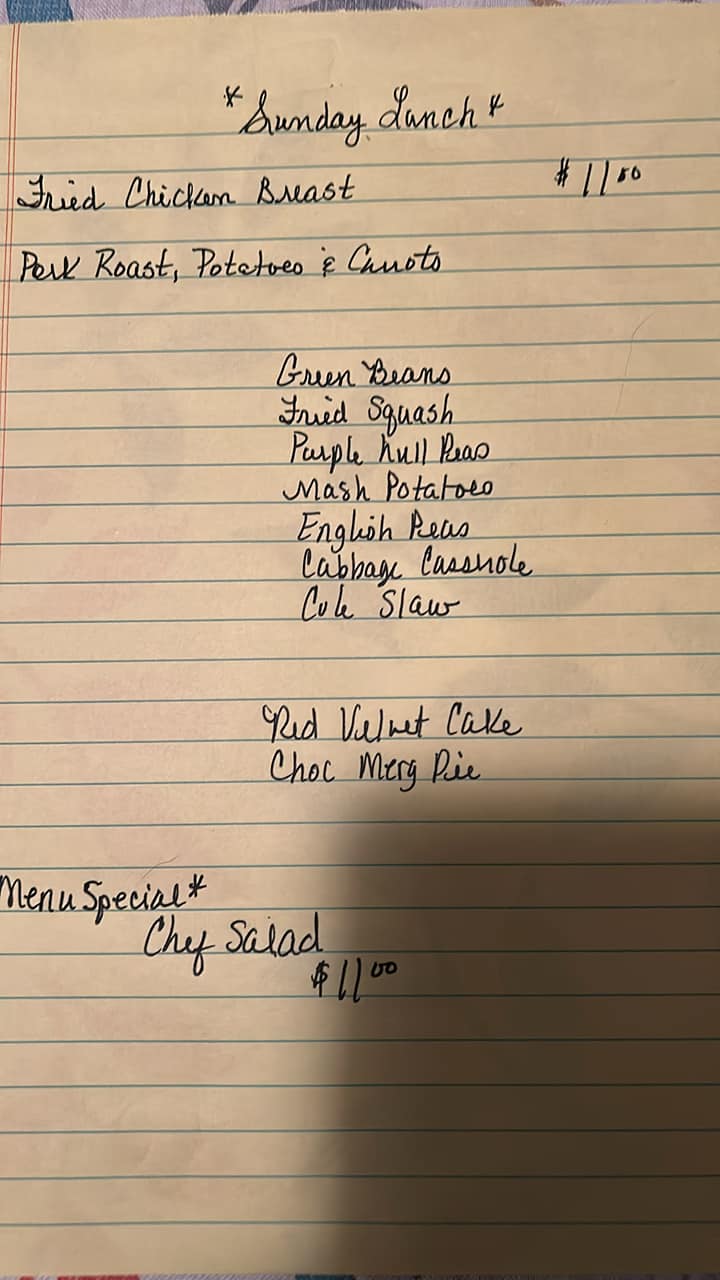 *Sunday Lunch*
Fried Chicken Breast $11.50
Pork Roast, Potatoes & Carrots
Green Beans
Fried Squash
Purple hull Peas
Mash Potatoes
English Peas
Cabbage Casserole
Cole Slaw
Red Velvet Cake
Choc Merg Pie
Menu Special*
Chef Salad
$11.00